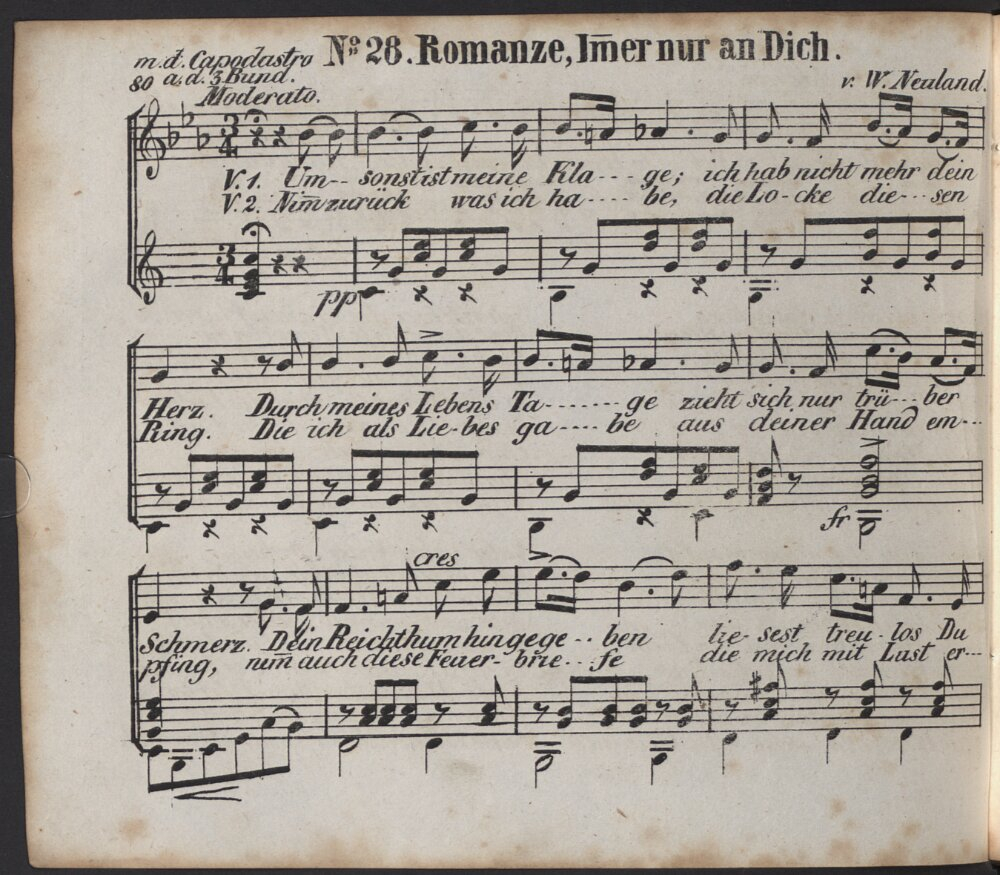 No. 28. Romanze, Im̄er nur an Dich.
m. d. Capodastro
so a. d. 3 Bund.
Moderato.
v. W. Neuland.
V. 1. Um-- sonst ist meine Kla---ge; ich hab nicht mehr dein
V. 2. Nim̄ zurück was ich ha----be, die Lo-cke die---sen
pp
Herz. Durch meines Lebens Ta------ge zieht sich nur trü--ber
Ring. Die ich als Lie-bes ga----be aus deiner Hand em---
fr
cres
Schmerz. Dein Reichthum hingege--ben lie-sest treu-los Du
pfing, nim̄ auch diese Feuer-brie--fe die mich mit Lust er---